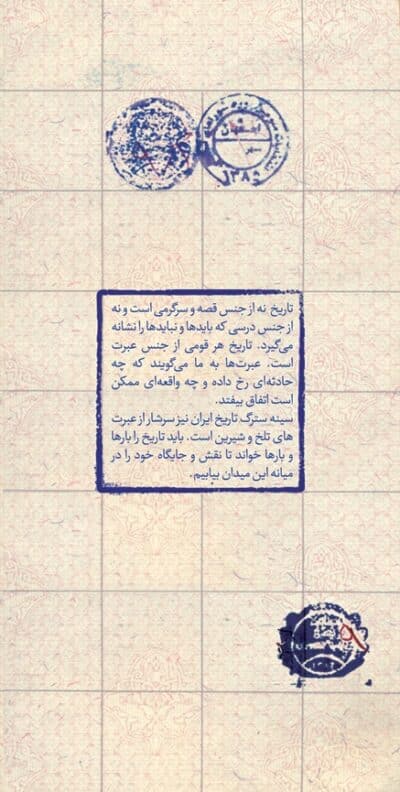 اصفهان
مهر
۱۳۸۵
تاریخ نه از جنس قصه و سرگرمی است و نه
از جنس درسی که بایدها و نبایدها را نشانه
می‌گیرد. تاریخ هر قومی از جنس عبرت
است. عبرت‌ها به ما می‌گویند که چه
حادثه‌ای رخ داده و چه واقعه‌ای ممکن
است اتفاق بیفتد.
سینه سترگ تاریخ ایران نیز سرشار از عبرت
های تلخ و شیرین است. باید تاریخ را بارها
و بارها خواند تا نقش و جایگاه خود را در
میانه این میدان بیابیم.